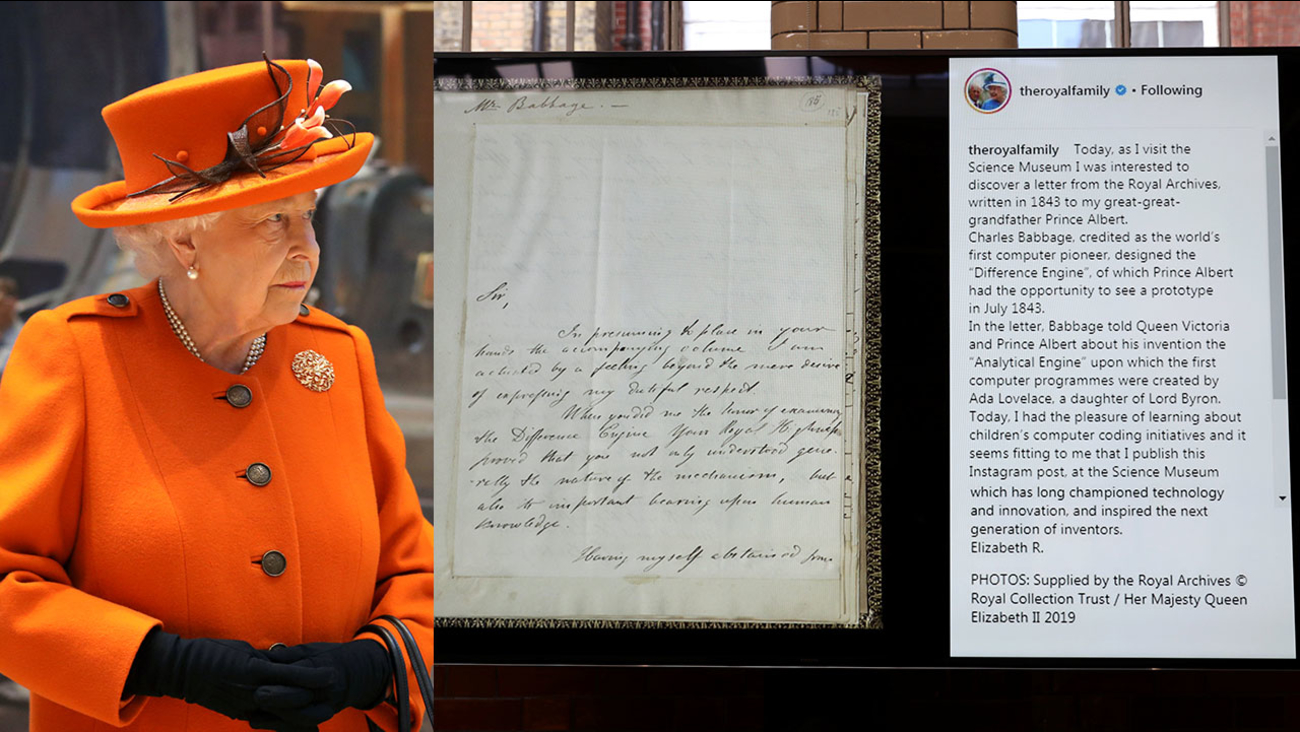 Mr. Babbage. —
186
Sir,
In presuming to place in your
hands the accompanying volume I am
actuated by a feeling beyond the mere desire
of expressing my dutiful respect.
When you did me the honor of examining
the Difference Engine Your Royal Highness
proved that you not only understood gene-
rally the nature of the mechanism, but
also its important bearing upon human
knowledge.
Having myself abstained from
theroyalfamily • Following
theroyalfamily Today, as I visit the
Science Museum I was interested to
discover a letter from the Royal Archives,
written in 1843 to my great-great-
grandfather Prince Albert.
Charles Babbage, credited as the world's
first computer pioneer, designed the
"Difference Engine", of which Prince Albert
had the opportunity to see a prototype
in July 1843.
In the letter, Babbage told Queen Victoria
and Prince Albert about his invention the
"Analytical Engine" upon which the first
computer programmes were created by
Ada Lovelace, a daughter of Lord Byron.
Today, I had the pleasure of learning about
children's computer coding initiatives and it
seems fitting to me that I publish this
Instagram post, at the Science Museum
which has long championed technology
and innovation, and inspired the next
generation of inventors.
Elizabeth R.
PHOTOS: Supplied by the Royal Archives ©
Royal Collection Trust / Her Majesty Queen
Elizabeth II 2019